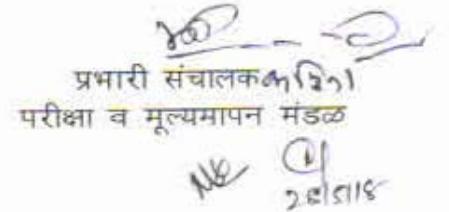 प्रभारी संचालक करिता
परीक्षा व मूल्यमापन मंडळ